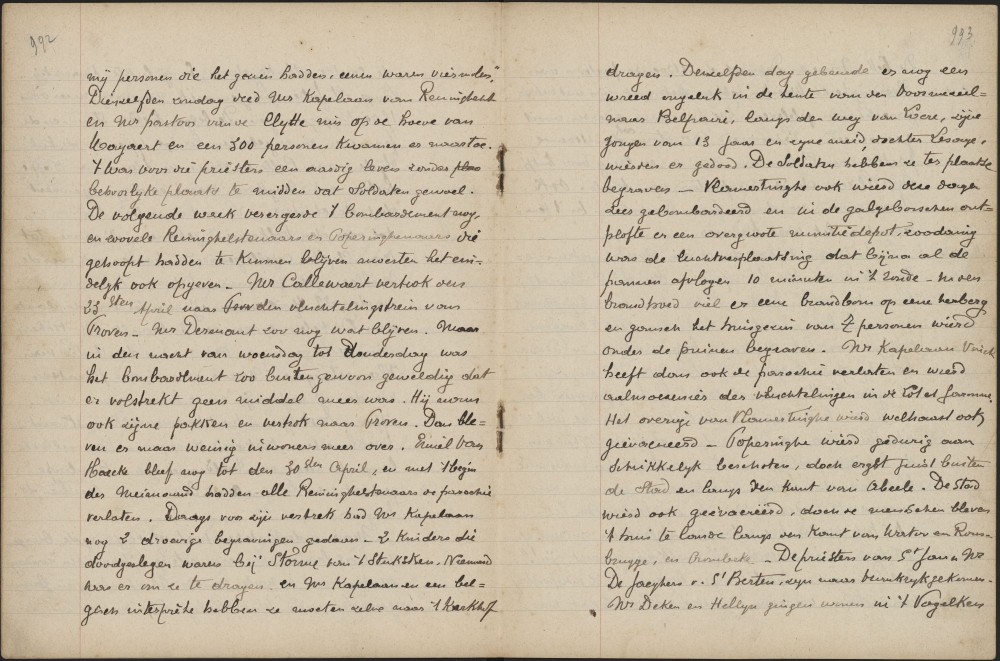 992
mij personen die het gezien hadden, eenen waren vriendes.
Dienzelfden zondag deed Mr Kapelaan van Reninghelst
en Mr pastoor van de Clytte mis op de hoeve van
Margaert en een 300 personen kwamen er naartoe.
't Was voor die priesters een aardig leven zonder plao
behoorlijke plaats te midden dat soldatengewoel.
De volgende week verergerde 't bombardement nog,
en zoovele Reninghelstenaars en Poperinghenaars die
gehoopt hadden te kunnen blijven moesten het ein-
delijk ook opgeven – Mr Callewaert vertrok den
23sten April naar den vluchtelingstrein van
Proven – Mr Dermont zou nog wat blijven. Maar
in den nacht van woensdag tot donderdag was
het bombardement zoo buitengewoon geweldig dat
er volstrekt geen middel meer was. Hij nam
ook zijne pakken en vertrok naar Proven. Dan ble-
ven er maar weinig inwoners meer over. Emiel Van
Haecke bleef nog tot den 30sten April, en met 't begin
der Meimaand hadden alle Reninghelstenaars de parochie
verlaten. Daags voor zijn vertrek had Mr Kapelaan
nog 2 droevige begravingen gedaan – 2 kinders die
doodgeslegen waren bij Storme van 't Stuksken. Niemand
was er om ze te dragen en Mr Kapelaan en een bel-
gisch interprète hebben ze moeten zelve naar 't kerkhof
993
dragen. Denzelfden dag gebeurde er nog een
wreed ongeluk in de tente van den
naar Belpaire, langs den weg van Loere, zijne
jongen van 13 jaar en zijne meid, dochter Lesage,
wierden er gedood. De soldaten hebben ze ter plaatse
begraven – Vlamertinghe ook wierd deze dagen
zeer gebombardeerd en in de galgebosschen ont-
plofte er een overgroote munitiedepot, zoodanig
was de luchtverplaatsing dat bijna al de
pannen afvlogen 10 minuten in 't ronde – In den
brandhoed viel er eene brandbom op eene herberg
en gansch het huisgezin van 7 personen wierd
onder de puinen begraven. Mr Kapelaan
heeft dan ook de parochie verlaten en wierd
aalmoezenier der vluchtelingen in de Lot et Garonne.
Het overige van Vlamertinghe wierd welhaast ook
geëvacueerd – Poperinghe wierd gedurig aan
schrikkelijk beschoten, doch ergst juist buiten
de Stad en langs den kant van Abeele. De Stad
wierd ook geëvacueerd, doch de menschen bleven
't huis te lande langs den kant van Watou en Rous-
brugge, en Crombeke – De priesters van St Jan en Mr
De Jaeghere v. St Berten, zijn naar Veurne gekomen.
Mr Deken en Hellyn gingen wonen in 't Vogelken